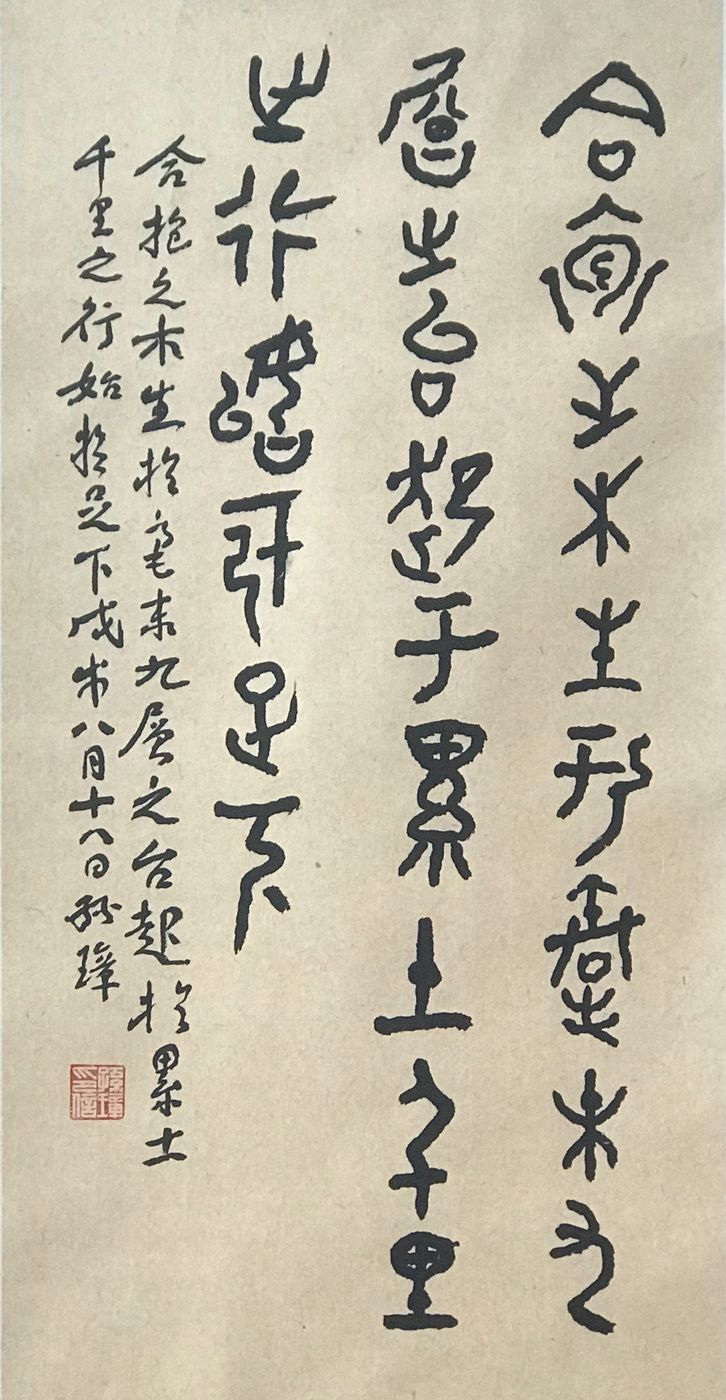 合抱之木生於毫末九
層之台起于累土千里
之行始於足下
合抱之木生於毫末九层之台起於累土
千里之行始於足下戊戌八月十八日孙璋